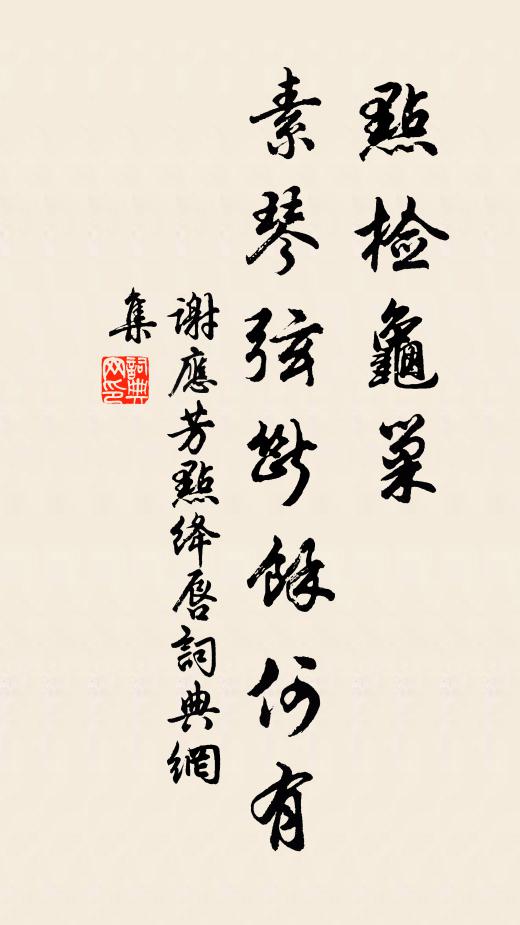 點檢龜巢
素琴弦斷餘何有
謝應芳點絳唇詞典網
集
詞典
网印